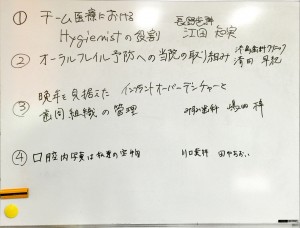 ① チーム医療における
Hygienistの役割
長岡歯科
江田 知実
② オーラルフレイル予防への当院の取り組み
歯科クリニック
早紀
③ 晩年を見据えた インプラントオーバーデンチャーと
歯周組織の管理
歯科 嶋田 梓
④ 口腔内写真は私達の宝物
川口歯科 田中